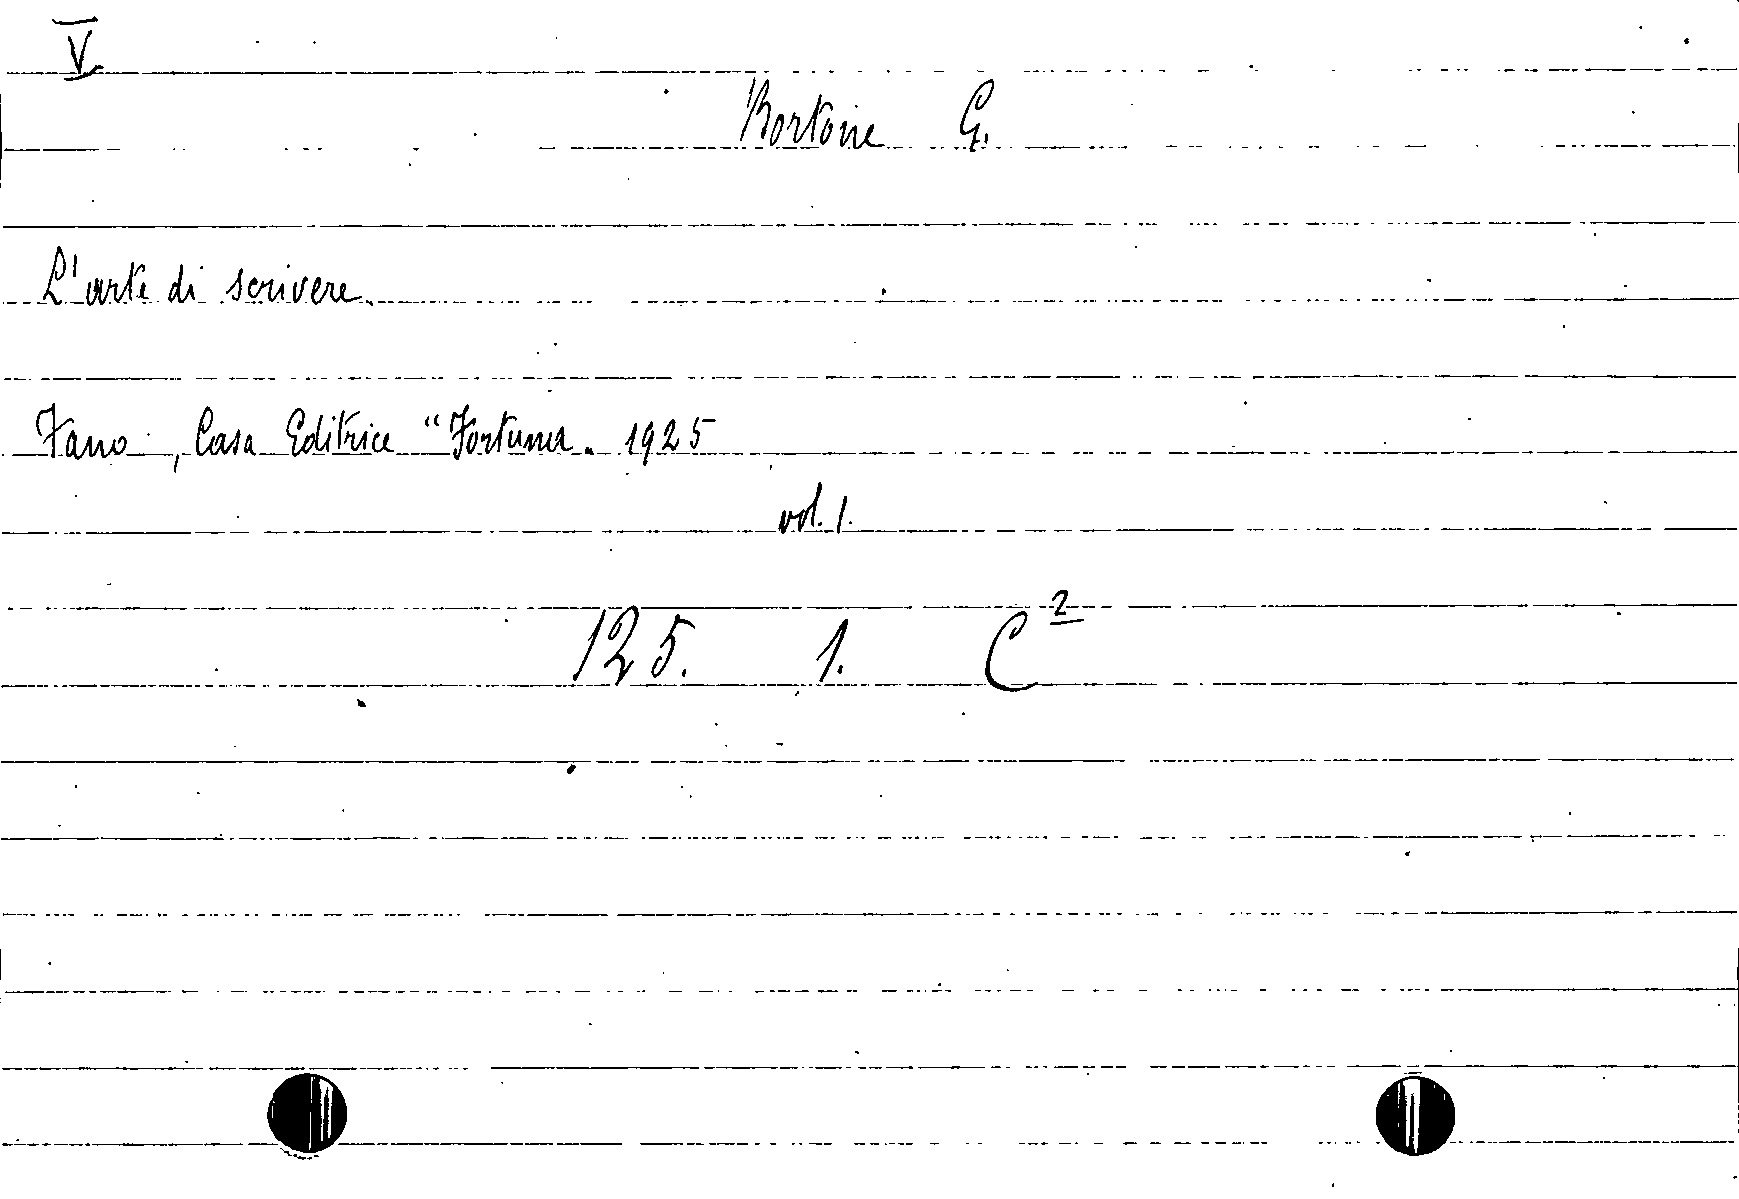 V
Bortone G.
L'arte di scrivere.
Fano, Casa Editrice "Fortuna. 1925
vol. 1.
125. 1. C²